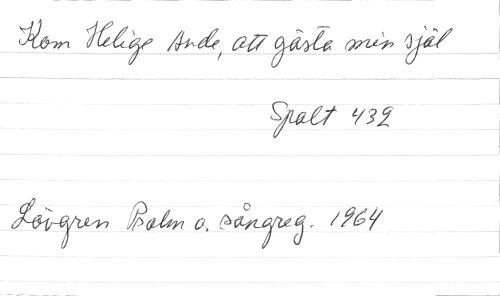 Kom Helige Ande, att gästa min själ
Spalt 432
Lövgren Psalm o. sångreg. 1964